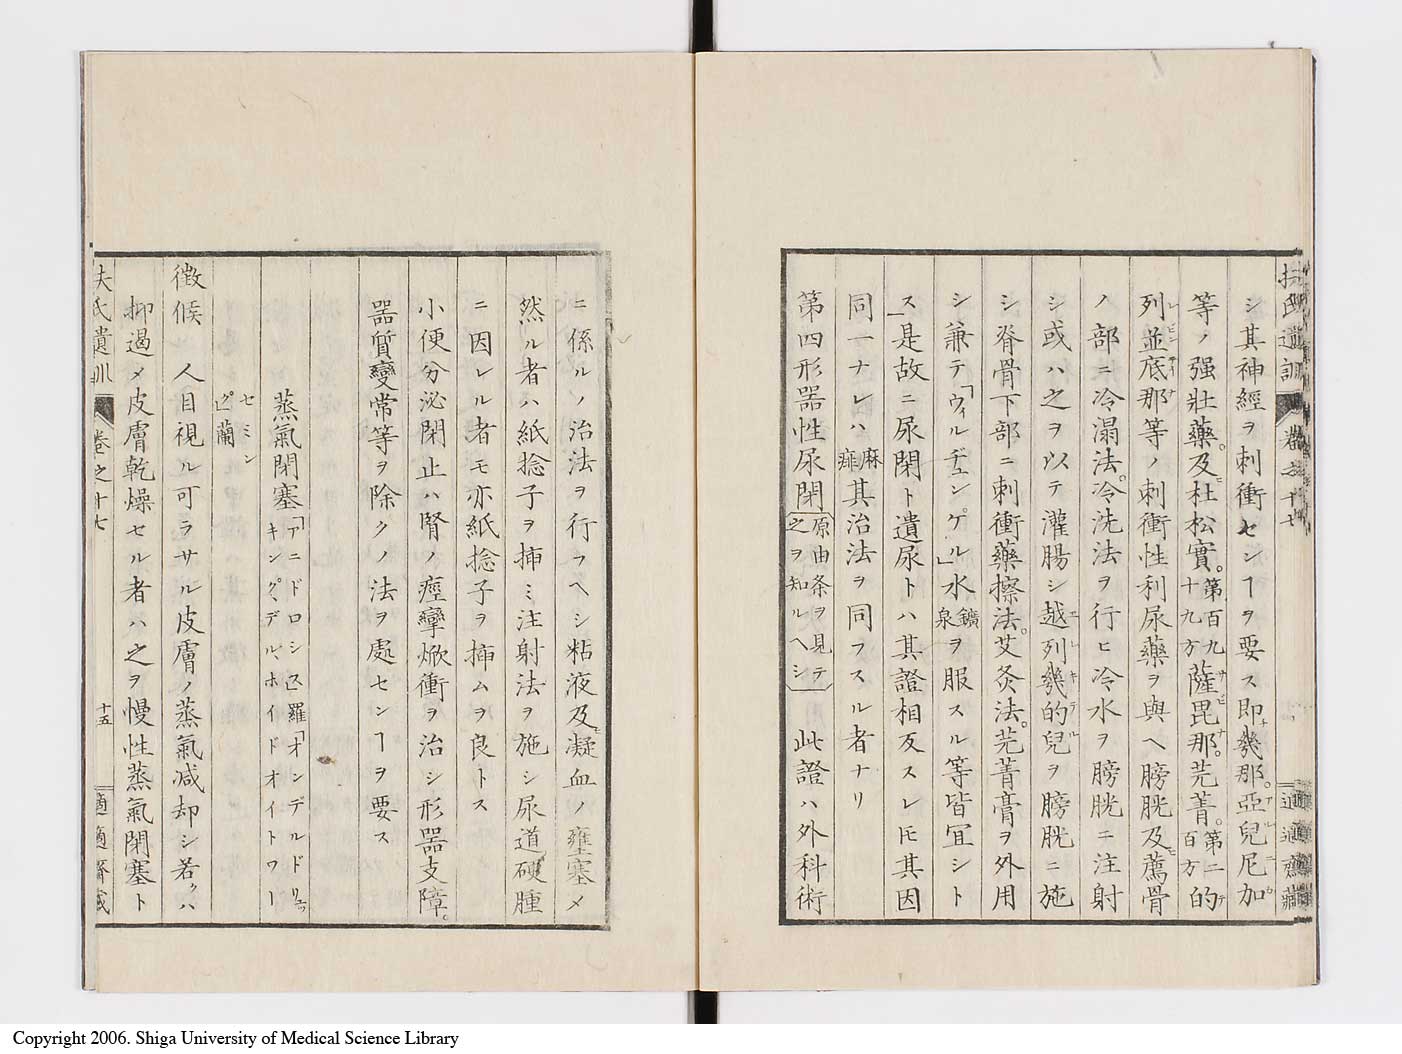 扶氏遺訓 卷之十七 適適齋藏
シ其神經ヲ刺衝センヿヲ要ス即幾那。亞兒尼加
等ノ强壯藥。及杜松實。第百九十九方薩毘那。芫菁。第二百方的
列並底那等ノ刺衝性利尿藥ヲ與ヘ膀胱及薦骨
ノ部ニ冷溻法。冷洗法ヲ行ヒ冷水ヲ膀胱ニ注射
シ或ハ之ヲ以テ灌腸シ越列幾的兒ヲ膀胱ニ施
シ脊骨下部ニ刺衝藥擦法。艾灸法。芫菁膏ヲ外用
シ兼テ「ウィルヂュンゲル」水鑛泉ヲ服スル等皆冝シト
ス是故ニ尿閉ト遺尿トハ其證相反スレ𪜈其因
同一ナレハ麻痺其治法ヲ同フスル者ナリ
第四形器性尿閉原由条ヲ見テ之ヲ知ルヘシ 此證ハ外科術
ニ係ルノ治法ヲ行フヘシ粘液及凝血ノ壅塞メ
然ル者ハ紙捻子ヲ挿ミ注射法ヲ施シ尿道硬腫
ニ因レル者モ亦紙捻子ヲ挿ムヲ良トス
小便分泌閉止ハ腎ノ痙攣焮衝ヲ治シ形器支障。
器質變常等ヲ除クノ法ヲ處センヿヲ要ス
蒸氣閉塞「アニドロシス」羅「オンデルドリュッキング、デル、ホイドオイトワーセミング」蘭
徵候 人目視ル可ラサル皮膚ノ蒸氣减却シ若クハ
抑遏メ皮膚乾燥セル者ハ之ヲ慢性蒸氣閉塞ト
扶氏遺訓 卷之十七 十五 適適齋藏
Copyright 2006. Shiga University of Medical Science Library